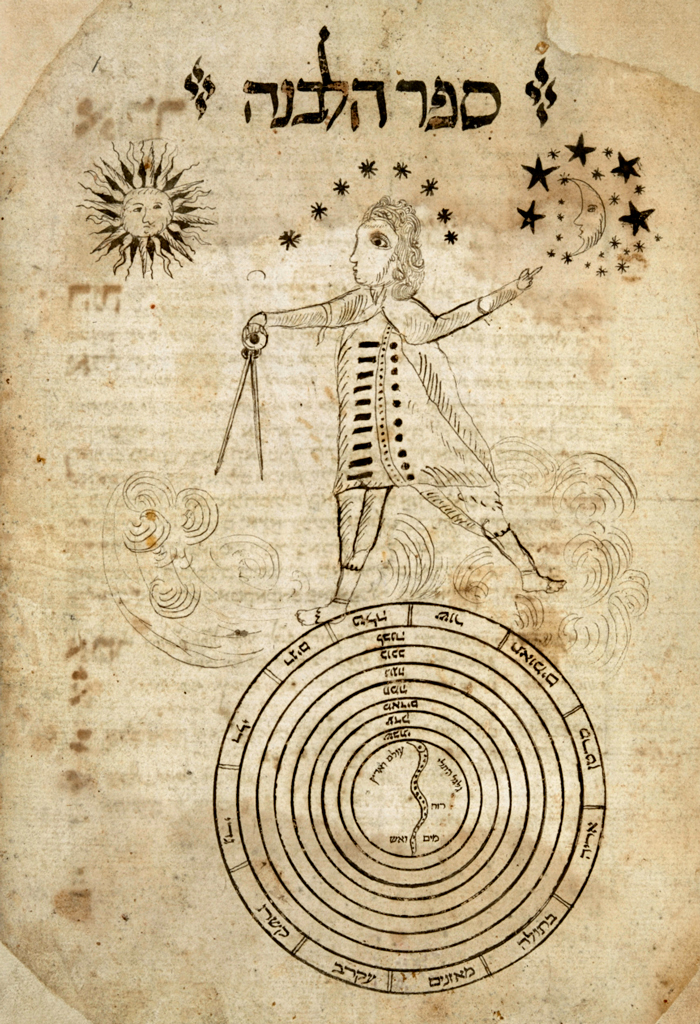 ספר הלבנה
שור
תאומים
סרטן
אריה
בתולה
מאזנים
עקרב
קשת
גדי
דלי
דגים
טלה
לבנה
כוכב
נוגה
חמה
מאדים
צדק
שבתי
רוח
מים
ואש